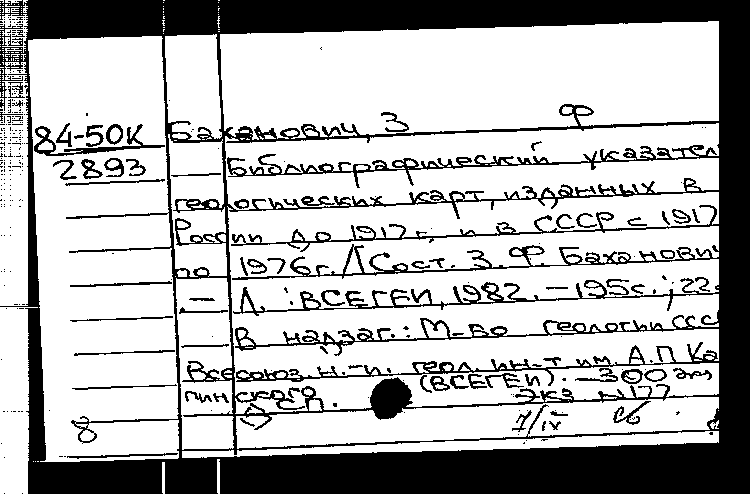 84-50К Баханович, З Ф
2893 Библиографический указател
геологических карт, изданных в
России до 1917 г. и в СССР с 1917
по 1976 г. / [Сост. З. Ф. Баханович
. – Л. : ВСЕГЕИ, 1982. – 195 с. ; 22
В надзаг.: М-во геологии ССС
Всесоюз. н.-и. геол. ин-т им. А.П Ка
пинского (ВСЕГЕИ). – 300 экз
ДСП. Экз N177
8 7/IV